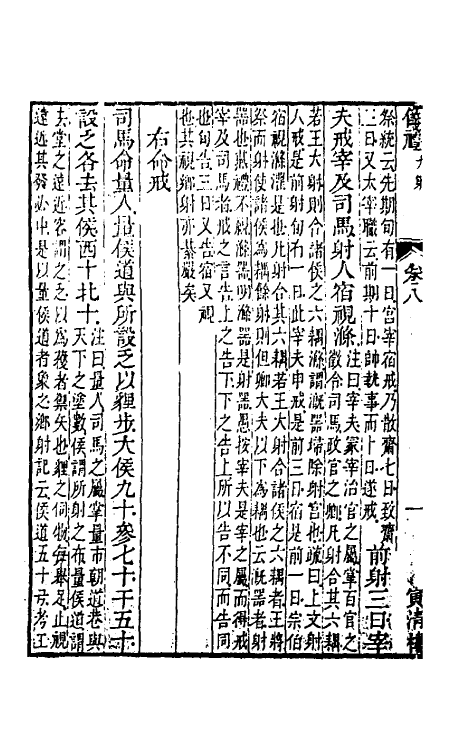 儀禮 大射 卷八 一 寅清樓
祭統云先期旬有一日宮宰宿戒乃散齋七日致齋
三日又太宰職云前期十日帥執事而卜日遂戒
前射三日宰
夫戒宰及司馬射人宿視滌
注曰宰夫冢宰治官之屬掌百官之
徵令司馬政官之卿凡射合其六耦
若王大射則合諸侯之六耦滌謂漑器埽除射宮也疏曰上文射
人戒是前射旬有一日此宰夫申戒是前三日宿是前一日宗伯
宿視滌濯是也凡射合其六耦若王大射合諸侯之六耦者王將
祭而射使諸侯為耦餘射則但卿大夫以下為耦也云漑器者射
器也燕禮不視滌器明滌器是射器愚按宰夫是宰之屬而得戒
宰及司馬者戒之言告上之告下下之告上所以告不同而告同
也旬告三日又告宿又視
也其視鄉射亦綦嚴矣
右命戒
司馬命量人量侯道與所設乏以貍步大侯九十參七十干五十
設乏各去其侯西十北十
注曰量人司馬之屬掌量市朝道巷與
天下之塗數侯謂所射之布量侯道謂
去堂之遠近容謂之乏以為獲者禦矢也貍之伺物每舉足止視
遠近其發必中是以量侯道者象之鄉射記云侯道五十弓考工